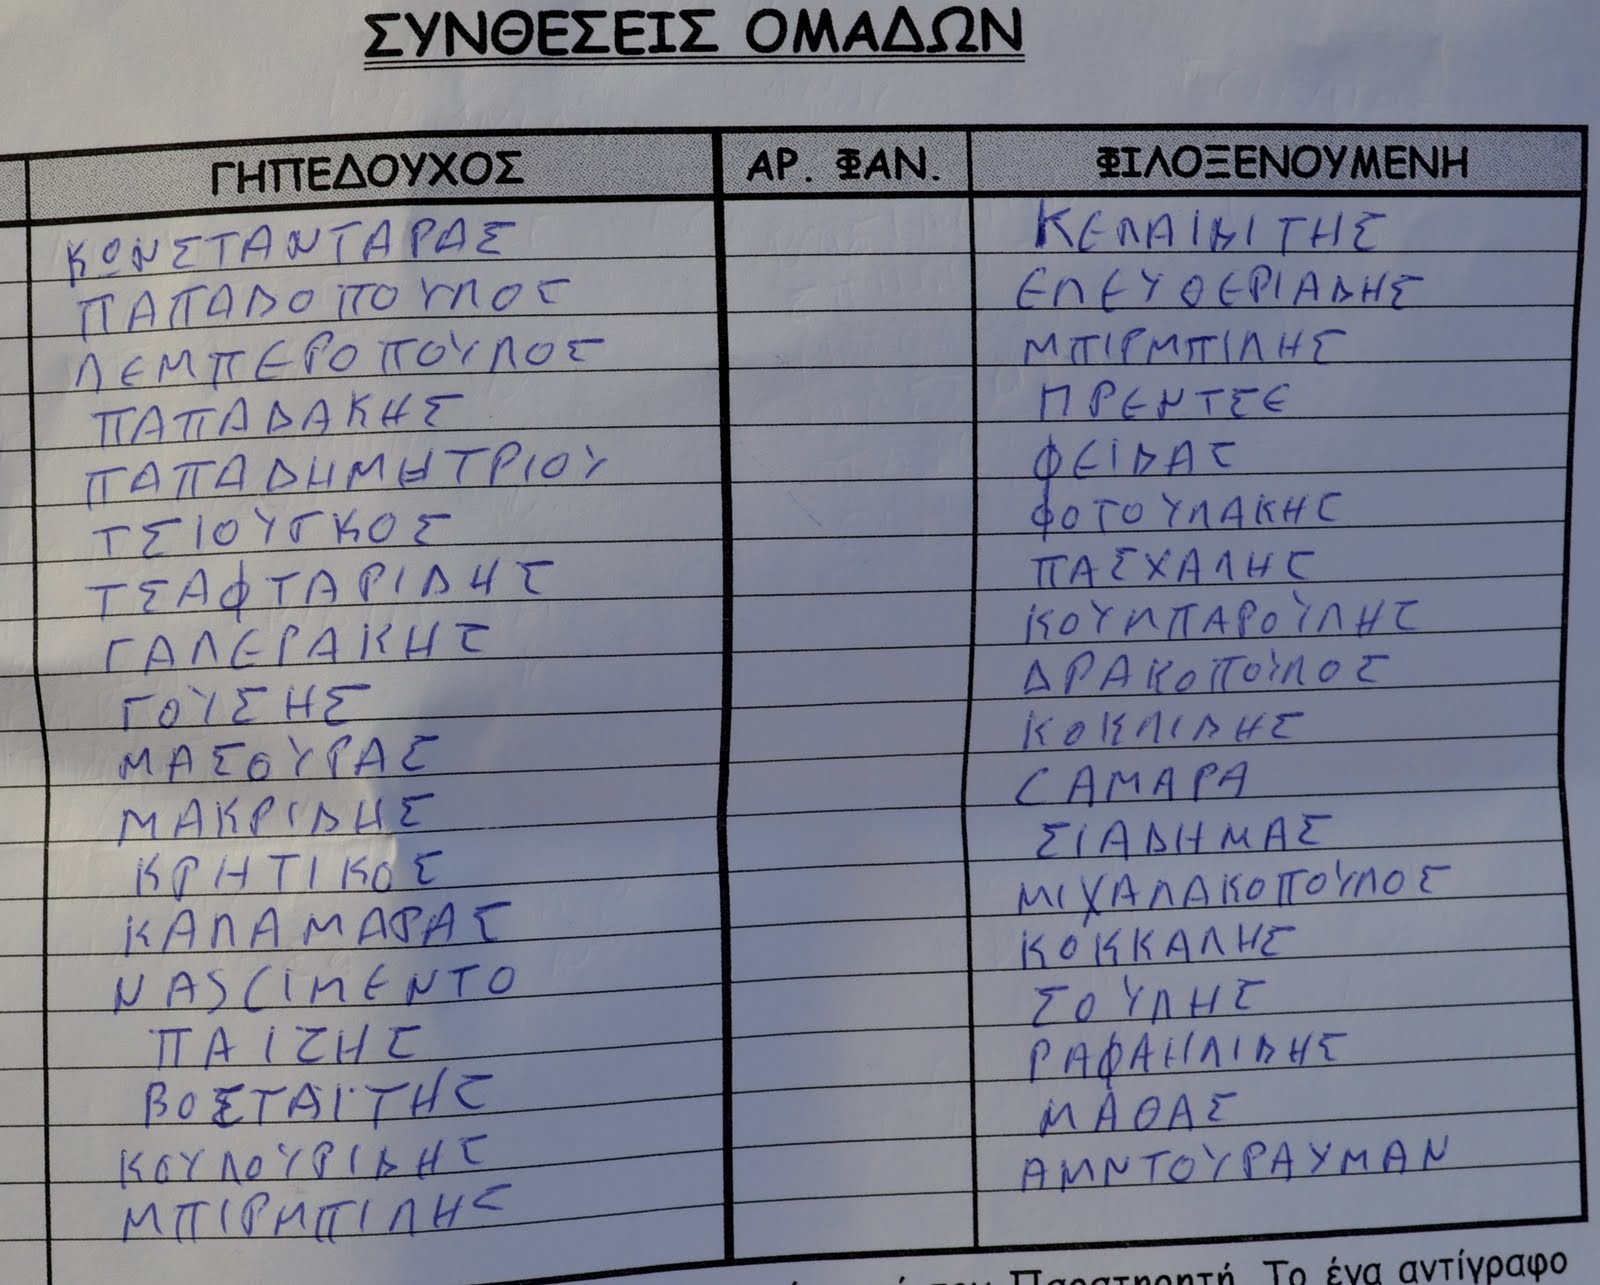 ΣΥΝΘΕΣΕΙΣ ΟΜΑΔΩΝ
ΓΗΠΕΔΟΥΧΟΣ ΑΡ. ΦΑΝ. ΦΙΛΟΞΕΝΟΥΜΕΝΗ
ΚΩΝΣΤΑΝΤΑΡΑΣ ΚΕΛΑΙΔΙΤΗΣ
ΠΑΠΑΔΟΠΟΥΛΟΣ ΕΛΕΥΘΕΡΙΑΔΗΣ
ΛΕΜΠΕΡΟΠΟΥΛΟΣ ΜΠΙΡΜΠΙΛΗΣ
ΠΑΠΑΔΑΚΗΣ ΠΡΕΝΤΣΕ
ΠΑΠΑΔΗΜΗΤΡΙΟΥ ΦΕΙΔΑΣ
ΤΣΙΟΥΓΚΟΣ ΦΟΤΟΥΛΑΚΗΣ
ΤΣΑΦΤΑΡΙΔΗΣ ΠΑΣΧΑΛΗΣ
ΓΑΛΕΡΑΚΗΣ ΚΟΥΜΠΑΡΟΥΛΗΣ
ΓΟΥΣΗΣ ΔΡΑΚΟΠΟΥΛΟΣ
ΜΑΣΟΥΡΑΣ ΚΟΚΛΙΔΗΣ
ΜΑΚΡΙΔΗΣ CΑΜΑΡΑ
ΚΡΗΤΙΚΟΣ ΣΙΑΔΗΜΑΣ
ΚΑΛΑΜΑΡΑΣ ΜΙΧΑΛΑΚΟΠΟΥΛΟΣ
NASCIMENTO ΚΟΚΚΑΛΗΣ
ΠΑΙΖΗΣ ΣΟΥΛΗΣ
ΒΟΣΤΑΪΤΗΣ ΡΑΦΑΗΛΙΔΗΣ
ΚΟΥΛΟΥΡΙΔΗΣ ΜΑΘΑΣ
ΜΠΙΡΜΠΙΛΗΣ ΑΜΝΤΟΥΡΑΥΜΑΝ
Παρατηρητή. Το ένα αντίγραφο